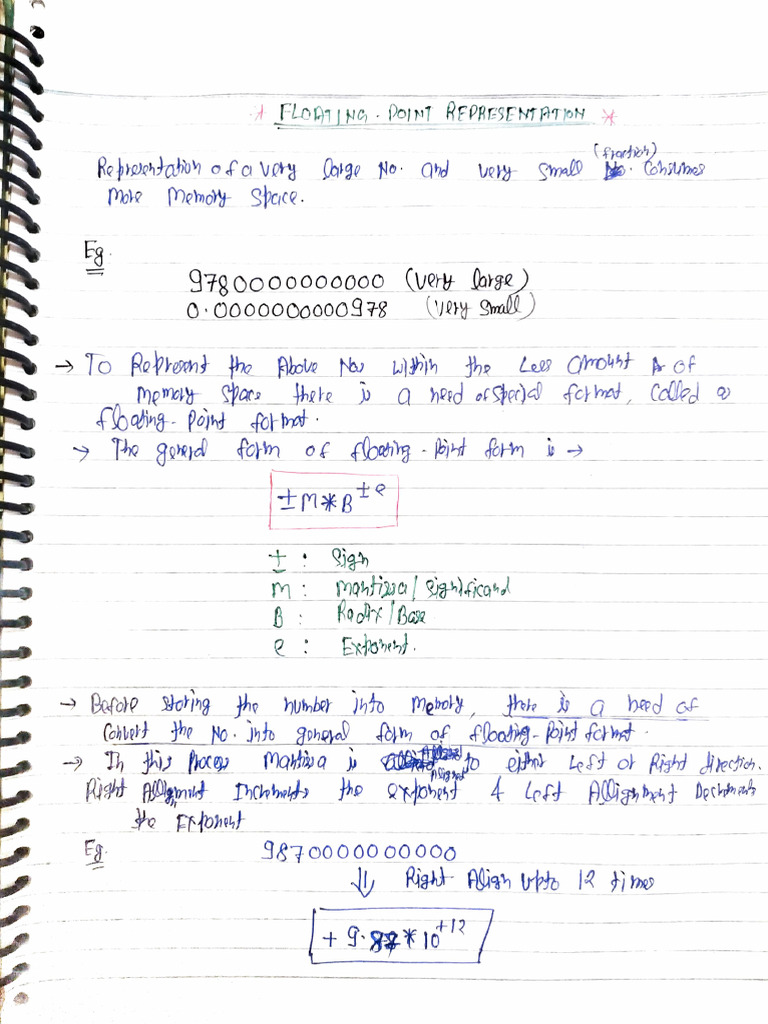 * FLOATING-POINT REPRESENTATION *
(fraction)
Representation of a very large No. and very small No. Consumes
More Memory Space.
Eg.
9780000000000 (very large)
0.0000000000978 (very small)
→ To Represent the Above Nos within the Less amount of
Memory Space there is a need of special format, called as
floating-Point format.
→ The general form of floating-Point form is →
±M*B^±e
± : Sign
M : Mantissa/Significand
B : Radix/Base
e : Exponent.
→ Before storing the number into Memory, there is a need of
Convert the No. into general form of floating-Point format.
→ In this Process Mantissa is Aligned to either Left or Right direction.
Right Allignment Increments the exponent & Left Allignment Decrments
the Exponent
Eg.
9870000000000
⇓ Right Align Upto 12 times
+ 9.87*10^+12